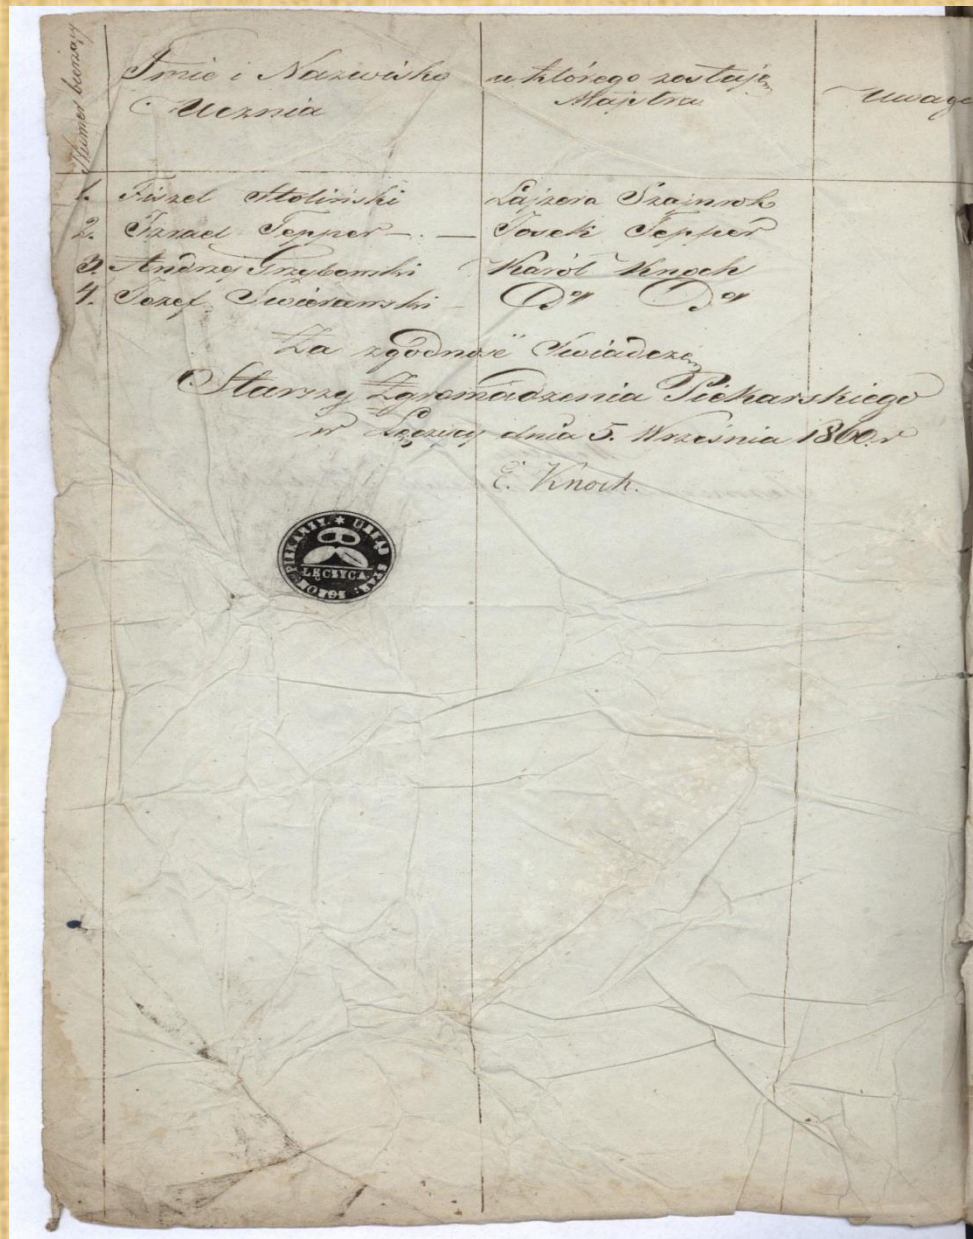 Numer bierzący
Imie i Nazwisko
Ucznia
u którego zostają
Majstra
Uwaga
1. Fiszel Stoliński Lajzera Szajnrok
2. Izrael Tepper Josek Tepper
3. Andrzej Grzybowski Karól Knoch
4. Józef Dº Dº
Za zgodność Swiadczem
Starszy Zgromadzenia Piekarskiego
w Łęczycy dnia 5. Września 1860 r
E. Knoch.
URZĄD STAR: ZGROM PIEKARZY
ŁĘCZYCA